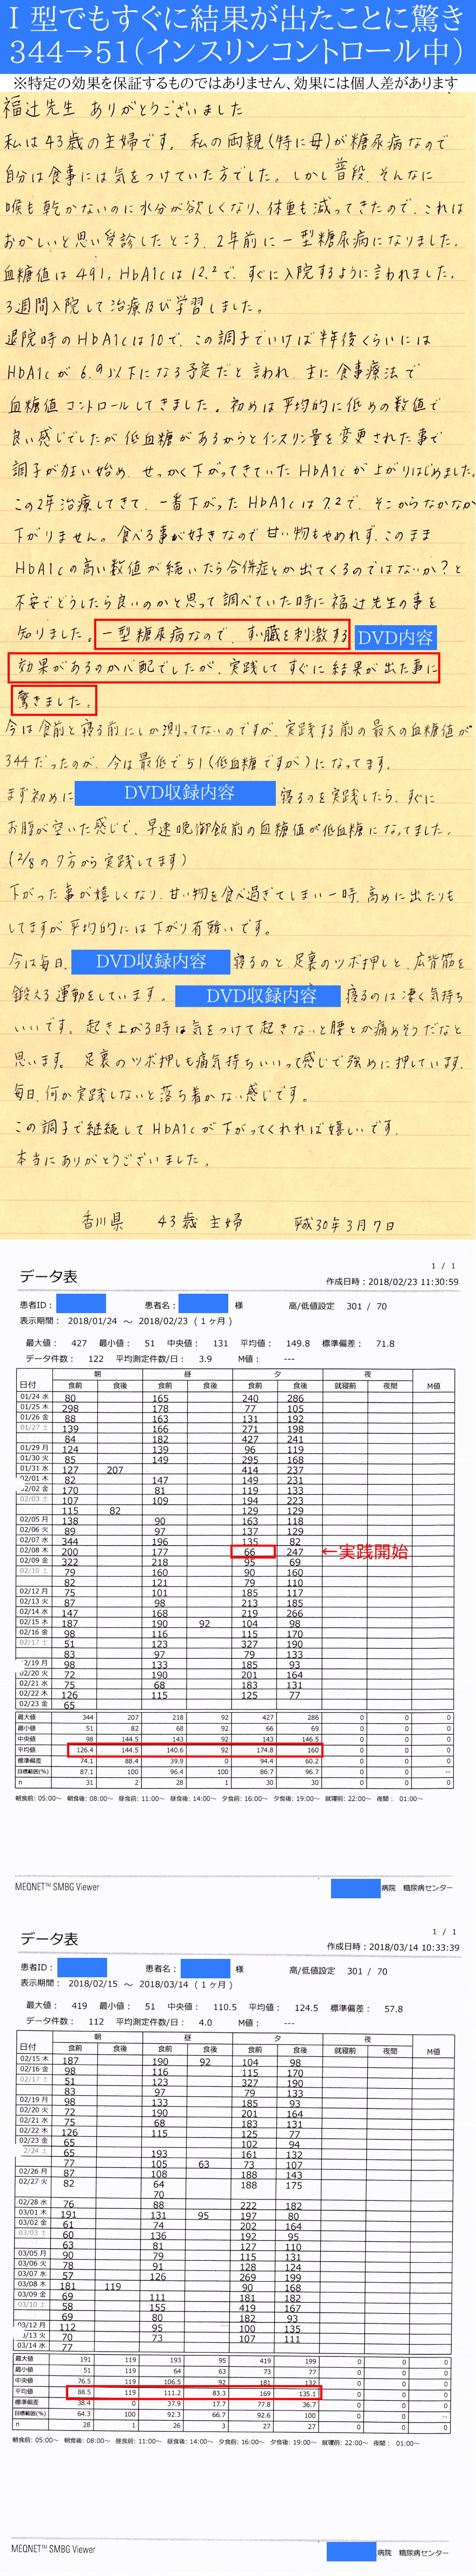 Ⅰ型でもすぐに結果が出たことに驚き
344→51（インスリンコントロール中）
※特定の効果を保証するものではありません、効果には個人差があります
福辻先生 ありがとうございました
私は43歳の主婦です。私の両親(特に母)が糖尿病なので
自分は食事には気をつけていた方でした。しかし普段、そんなに
喉も乾かないのに水分が欲しくなり、体重も減ってきたので、これは
おかしいと思い受診したところ、2年前に一型糖尿病になりました。
血糖値は491、HbA1cは12.2で、すぐに入院するように言われました。
3週間入院して治療及び学習しました。
退院時のHbA1cは10で、この調子でいけば半年後くらいには
HbA1cが6.9以下になる予定だと言われ、主に食事療法で
血糖値コントロールしてきました。初めは平均的に低めの数値で
良い感じでしたが低血糖があるからとインスリン量を変更された事で
調子が狂い始め、せっかく下がってきていたHbA1cが上がりはじめました。
この2年治療してきて、一番下がったHbA1cは7.2で、そこからなかなか
下がりません。食べる事が好きなので甘い物もやめれず、このまま
HbA1cの高い数値が続いたら合併症とか出てくるのではないか?と
不安でどうしたら良いのかと思って調べていた時に福辻先生の事を
知りました。一型糖尿病なので、すい臓を刺激する DVD内容
効果があるのか心配でしたが、実践してすぐに結果が出た事に
驚きました。
今は食前と寝る前にしか測ってないのですが、実践する前の最大の血糖値が
344だったのが、今は最低で51(低血糖ですが)になってます。
まず初めに DVD収録内容 寝るのを実践したら、すぐに
お腹が空いた感じで、早速晩御飯前の血糖値が低血糖になってました。
(2/8の夕方から実践してます)
下がった事が嬉しくなり、甘い物を食べ過ぎてしまい一時、高めに出たりも
してますが平均的には下がり有難いです。
今は毎日、DVD収録内容 寝るのと、足裏のツボ押しと、広背筋を
鍛える運動をしています。DVD収録内容 寝るのは凄く気持ち
いいです。起き上がる時は気をつけて起きないと腰とか痛めそうだなと
思います。足裏のツボ押しも痛気持ちいいって感じで強めに押しています。
毎日、何か実践しないと落ち着かない感じです。
この調子で継続してHbA1cが下がってくれれば嬉しいです。
本当にありがとうございました。
香川県 43歳 主婦 平成30年3月7日
1 / 1
データ表
作成日時：2018/02/23 11:30:59
患者ID： 患者名： 様 高/低値設定 301 / 70
表示期間： 2018/01/24 ～ 2018/02/23 （1ヶ月）
最大値： 427 最小値： 51 中央値： 131 平均値： 149.8 標準偏差： 71.8
データ件数： 122 平均測定件数/日： 3.9 M値： ---
朝 昼 夕 夜
日付 食前 食後 食前 食後 食前 食後 就寝前 夜間 M値
01/24 水 80 165 240 286
01/25 木 298 178 77 105
01/26 金 88 163 131 192
01/27 土 139 166 271 198
84 182 427 241
01/29 月 124 139 96 119
01/30 火 85 149 295 168
01/31 水 127 207 414 237
02/01 木 82 147 149 231
02/02 金 170 81 119 133
02/03 土 107 109 194 223
115 82 129 129
02/05 月 138 90 163 118
02/06 火 89 97 137 129
02/07 水 344 196 135 82
02/08 木 200 177 66 247 ←実践開始
02/09 金 322 218 95 69
02/10 土 79 160 90 160
82 121 79 110
02/12 月 75 101 185 117
02/13 火 87 98 213 185
02/14 水 147 168 219 266
02/15 木 187 190 92 104 98
02/16 金 98 116 115 170
02/17 土 51 123 327 190
83 97 79 133
2/19 月 98 133 185 93
02/20 火 72 190 201 164
02/21 水 75 68 183 131
02/22 木 126 115 125 77
02/23 金 65
最大値 344 207 218 92 427 286 0 0 0
最小値 51 82 68 92 66 69 0 0 0
中央値 98 144.5 143 92 143 146.5 0 0 0
平均値 126.4 144.5 140.6 92 174.8 160 0 0 0
標準偏差 74.1 88.4 39.9 0 94.4 60.2 0 0 0
目標範囲(%) 87.1 100 96.4 100 86.7 96.7 0 0 --
n 31 2 28 1 30 30 0 0 0
朝食前: 05:00～ 朝食後: 08:00～ 昼食前: 11:00～ 昼食後: 14:00～ 夕食前: 16:00～ 夕食後: 19:00～ 就寝前: 22:00～ 夜間： 01:00～
MEQNET™ SMBG Viewer 病院 糖尿病センター
1 / 1
データ表
作成日時：2018/03/14 10:33:39
患者ID： 患者名： 様 高/低値設定 301 / 70
表示期間： 2018/02/15 ～ 2018/03/14 （1ヶ月）
最大値： 419 最小値： 51 中央値： 110.5 平均値： 124.5 標準偏差： 57.8
データ件数： 112 平均測定件数/日： 4.0 M値： ---
朝 昼 夕 夜
日付 食前 食後 食前 食後 食前 食後 就寝前 夜間 M値
02/15 木 187 190 92 104 98
02/16 金 98 116 115 170
02/17 土 51 123 327 190
83 97 79 133
02/19 月 98 133 185 93
02/20 火 72 190 201 164
02/21 水 75 68 183 131
02/22 木 126 115 125 77
02/23 金 65 102 94
2/24 土 65 193 161 132
77 105 63 73 107
02/26 月 87 108 188 143
02/27 火 82 64 188 175
70
02/28 水 76 88 222 182
03/01 木 191 131 95 197 80
03/02 金 61 74 202 164
03/03 土 60 136 192 95
63 81 127 110
03/05 月 90 79 115 131
03/06 火 78 91 128 124
03/07 水 57 126 269 199
03/08 木 181 119 90 168
03/09 金 69 111 181 182
03/10 土 58 155 419 167
69 80 182 93
03/12 月 112 95 100 135
3/13 火 70 73 107 111
03/14 水 77
最大値 191 119 193 95 419 199 0 0 0
最小値 51 119 64 63 73 77 0 0 0
中央値 76.5 119 106.5 92 181 132 0 0 0
平均値 88.5 119 111.2 83.3 169 135.1 0 0 0
標準偏差 38.4 0 37.9 17.7 77.8 36.7 0 0 0
目標範囲(%) 64.3 100 92.3 66.7 92.6 100 0 0 --
n 28 1 26 3 27 27 0 0 0
朝食前: 05:00～ 朝食後: 08:00～ 昼食前: 11:00～ 昼食後: 14:00～ 夕食前: 16:00～ 夕食後: 19:00～ 就寝前: 22:00～ 夜間： 01:00～
MEQNET™ SMBG Viewer 病院 糖尿病センター